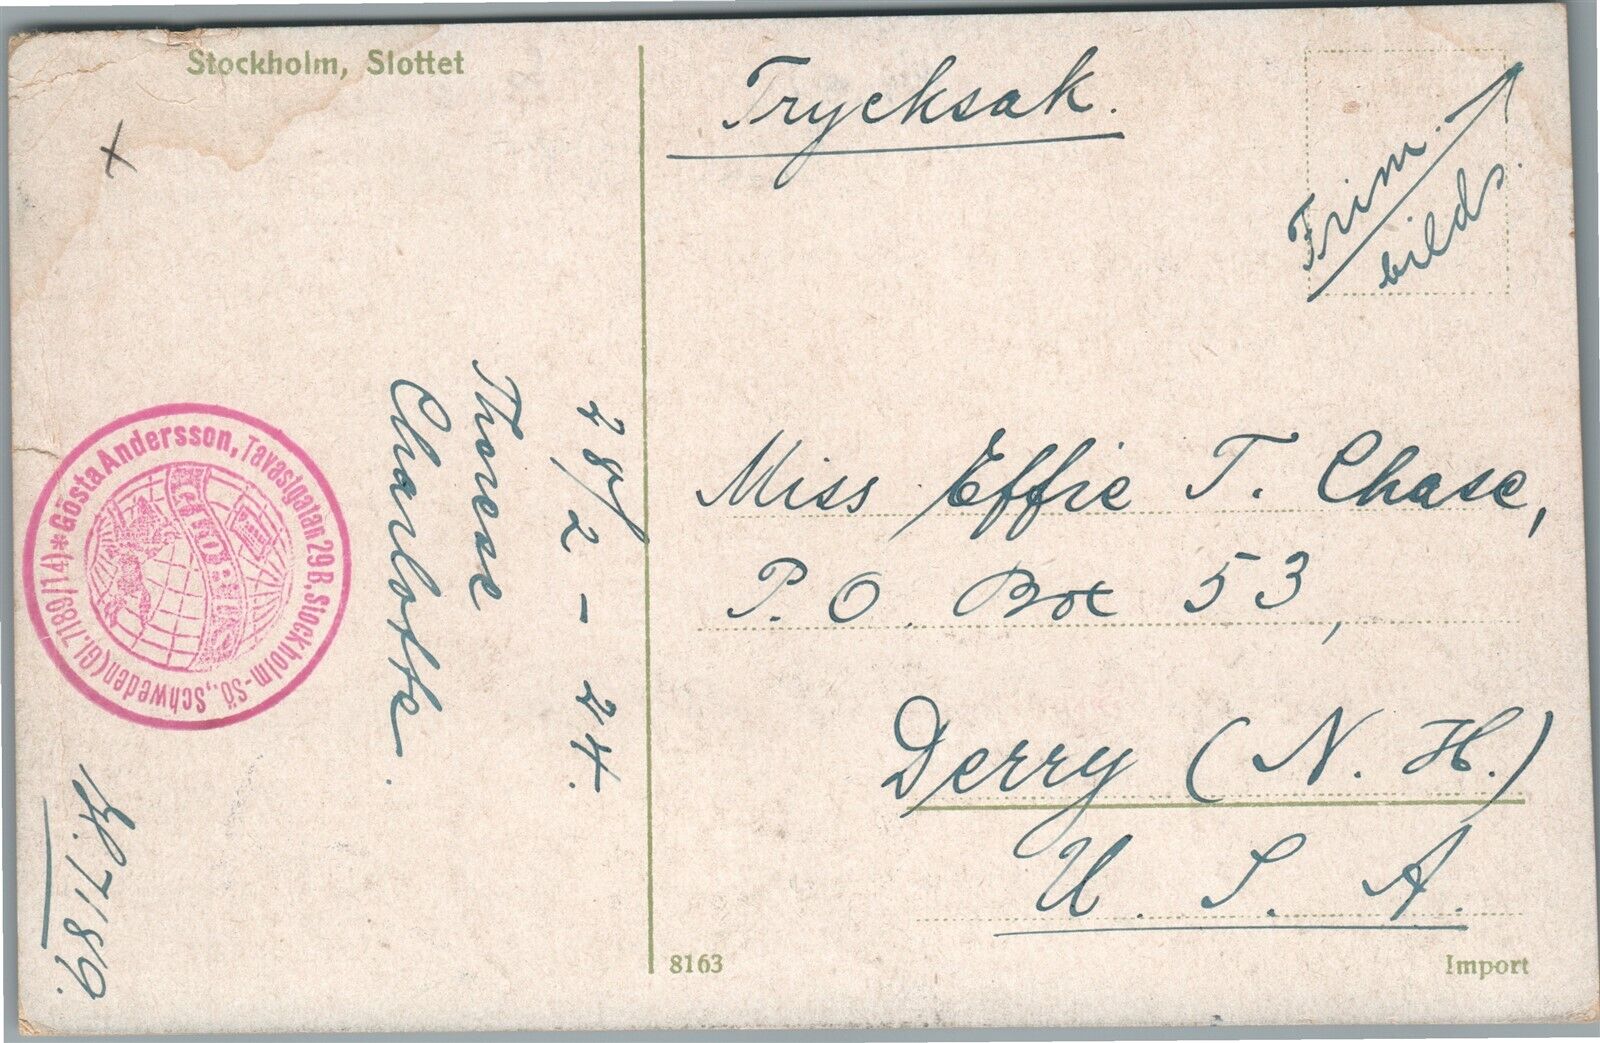 Stockholm, Slottet
Trycksak.
Frim.
bilds.
x
28/2 - 24.
Therese
Charlotte.
*Gösta Andersson, Tavastgatan 29 B, Stockholm-Sö., Schweden (Gl. 7189/14)
GLOBUS
Miss Effie T. Chase,
P. O. Box 53,
Derry (N. H.)
U. S. A.
7189.
8163
Import